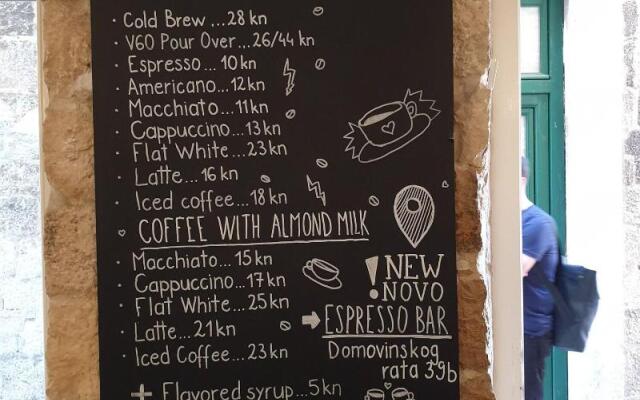 · Cold Brew ...28 kn
· V60 Pour Over...26/44 kn
· Espresso... 10 kn
· Americano...12kn
· Macchiato...11 kn
· Cappuccino...13 kn
· Flat White...23 kn
· Latte... 16 kn
· Iced coffee...18 kn
COFFEE WITH ALMOND MILK
· Macchiato...15 kn
· Cappuccino...17 kn
· Flat White...25 kn
· Latte...21 kn
· Iced Coffee...23 kn
+ Flavored syrup...5 kn
! NEW
NOVO
➡ ESPRESSO BAR
Domovinskog
rata 39b